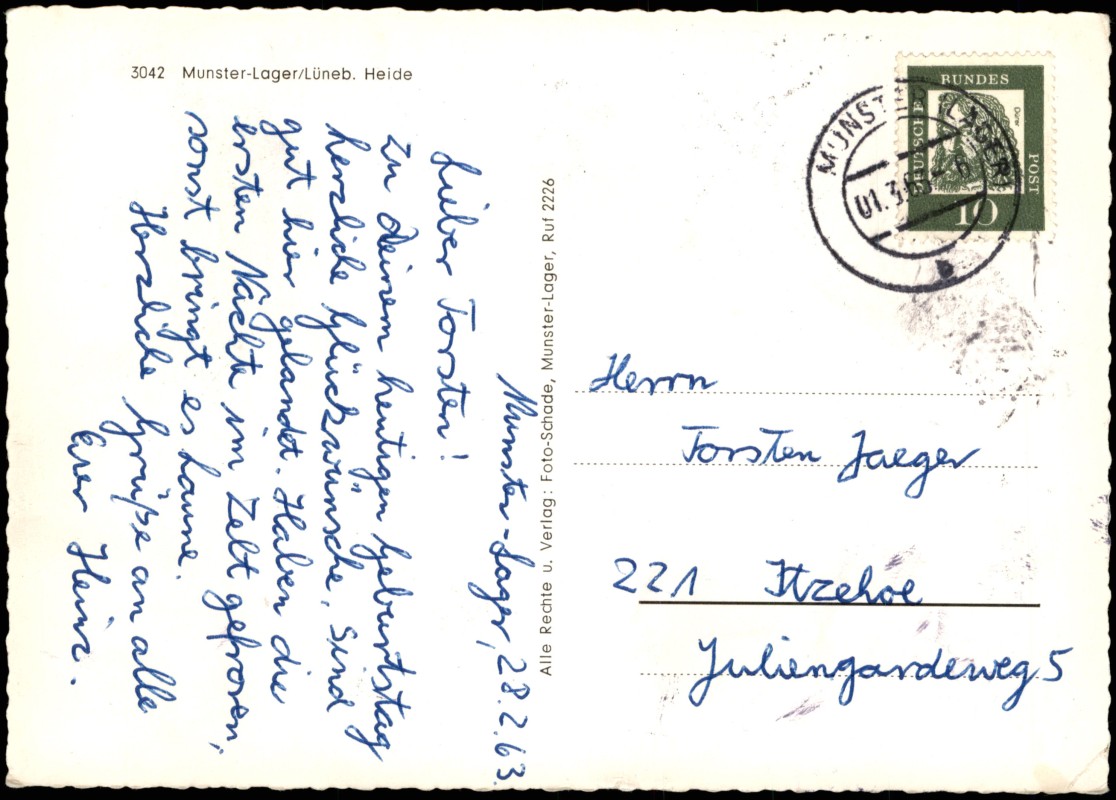 3042 Munster-Lager/Lüneb. Heide
Munster-Lager, 28.2.63.
Lieber Torsten!
Zu Deinem heutigen Geburtstag
herzliche Glückwünsche. Sind
gut hier gelandet. Haben die
ersten Nächte im Zelt gefroren,
sonst bringt es Laune.
Herzliche Grüße an alle
Euer Heinz.
Alle Rechte u. Verlag: Foto-Schade, Munster-Lager, Ruf 2226
DEUTSCHE
BUNDES
POST
Dürer
10
MUNSTER (LAGER)
01.3.63-6
a
Herrn
Torsten Jaeger
221 Itzehoe
Juliengardeweg 5